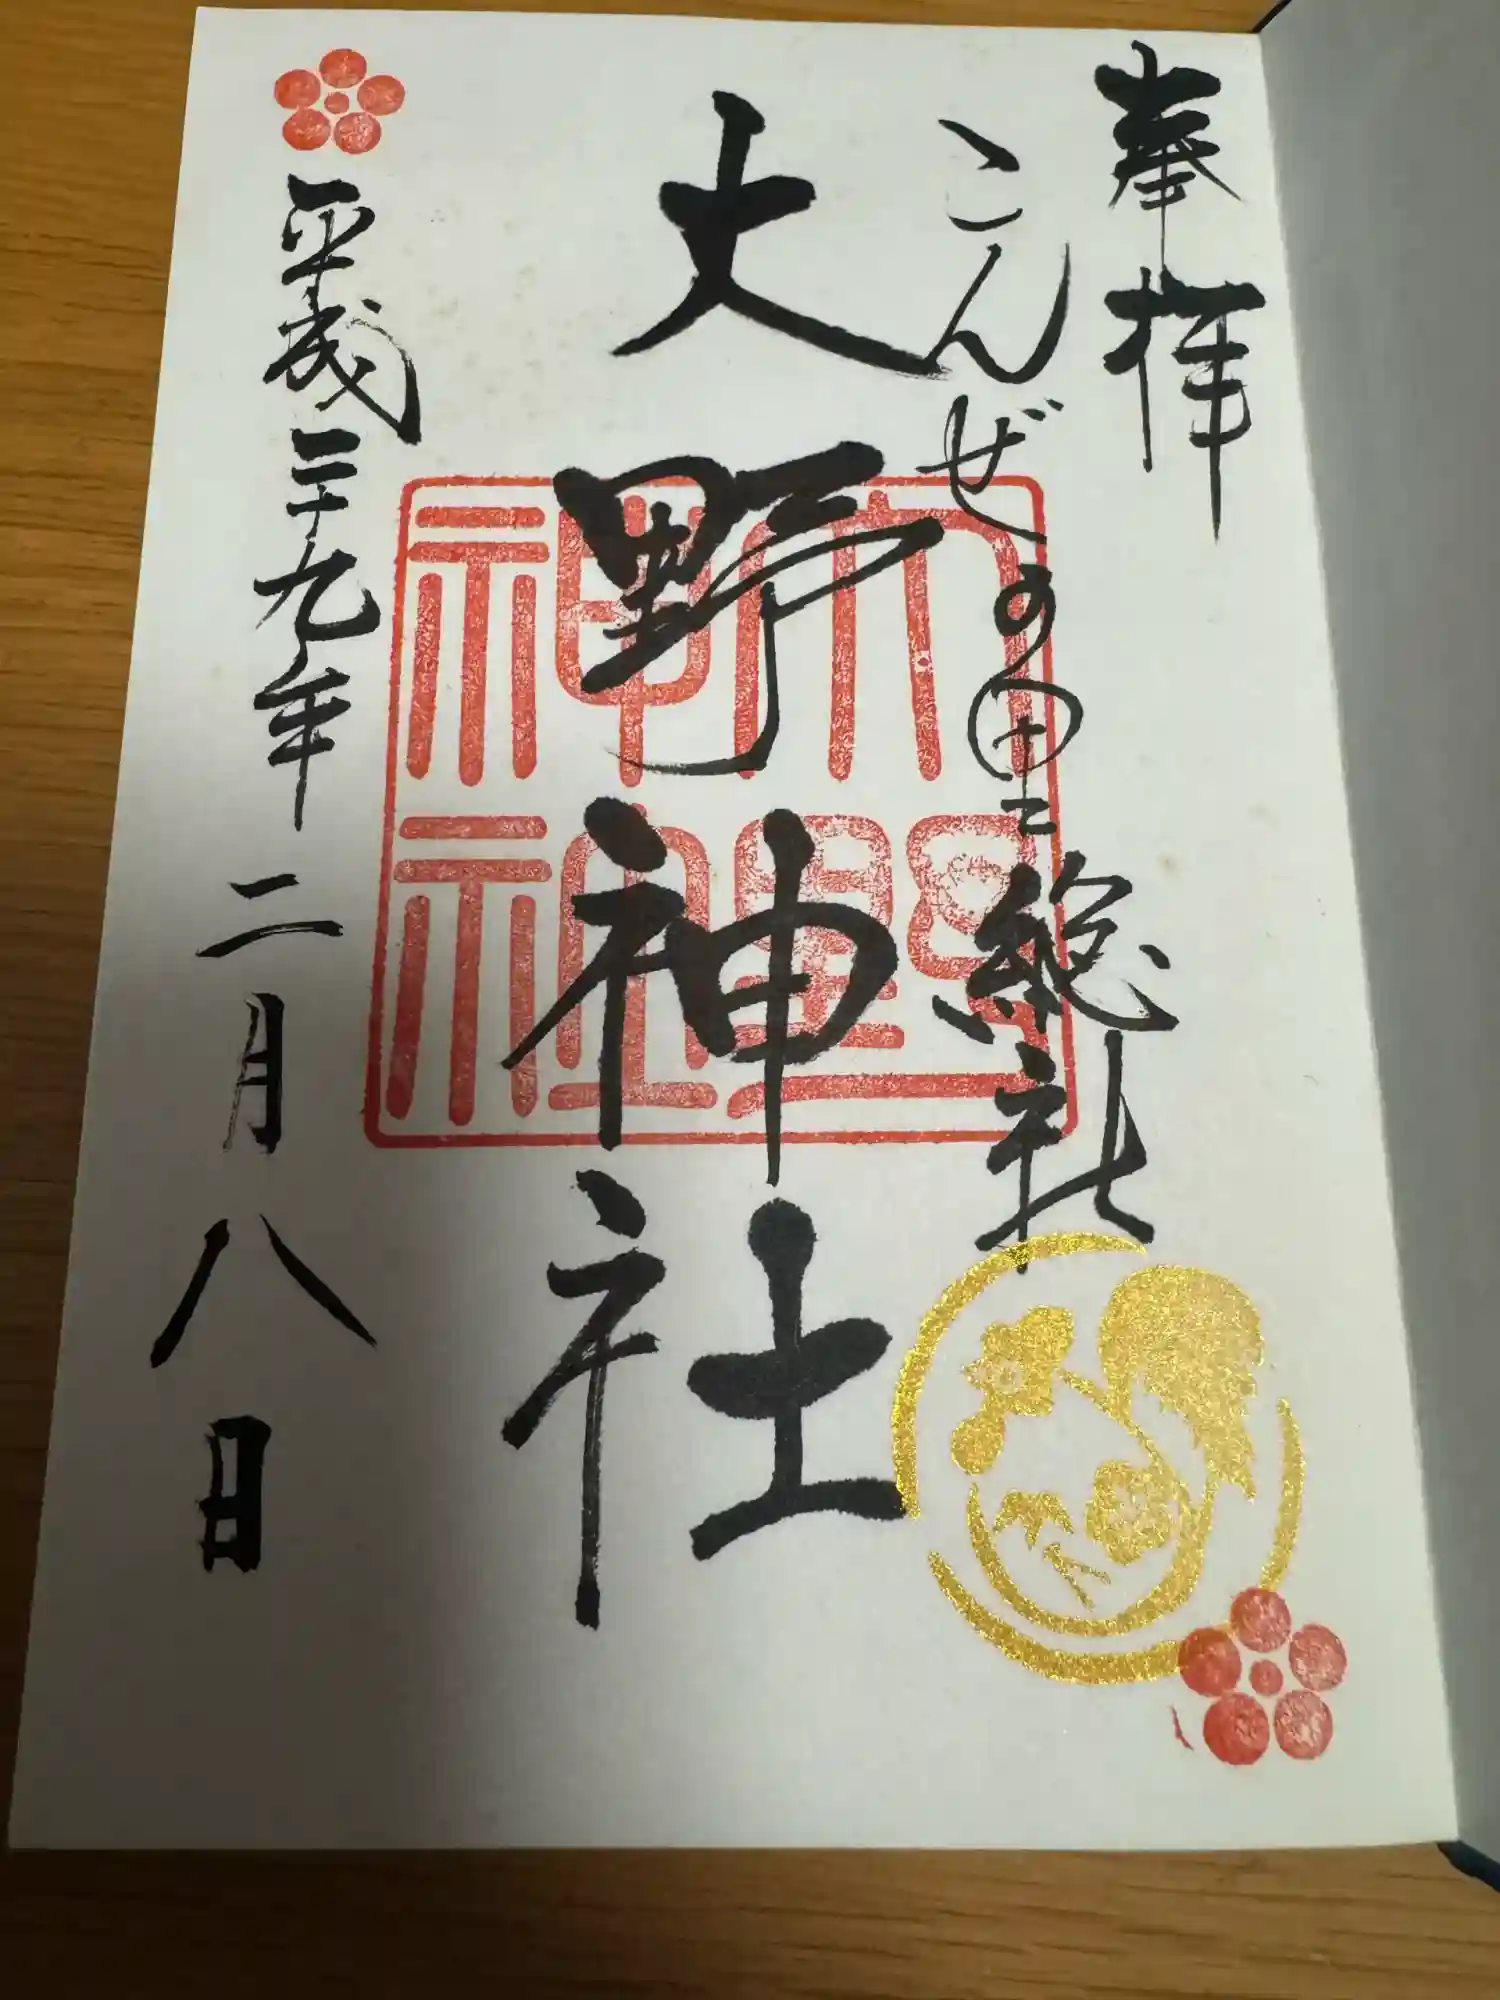 奉拝
こんぜの里 総社
大野神社
大野
神社
平成二十九年二月八日